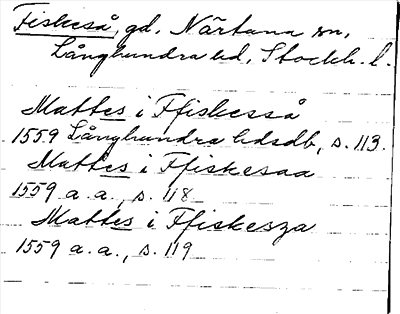 Fiskeså, gd, Närtuna sn,
Långhundra hd, Stockh. l.
Mattes i Ffiskesså
1559 Långhundra hdsdb, s. 113.
Mattes i Ffiskesaa
1559 a. a., s. 118
Mattes i Ffiskesza
1559 a. a., s. 119